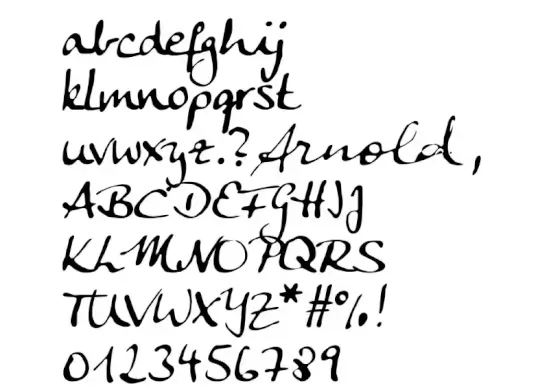 abcdefghij
klmnopqrst
uvwxyz.? Arnold,
ABCDEFGHIJ
KLMNOPQRS
TUVWXYZ*#%!
0123456789